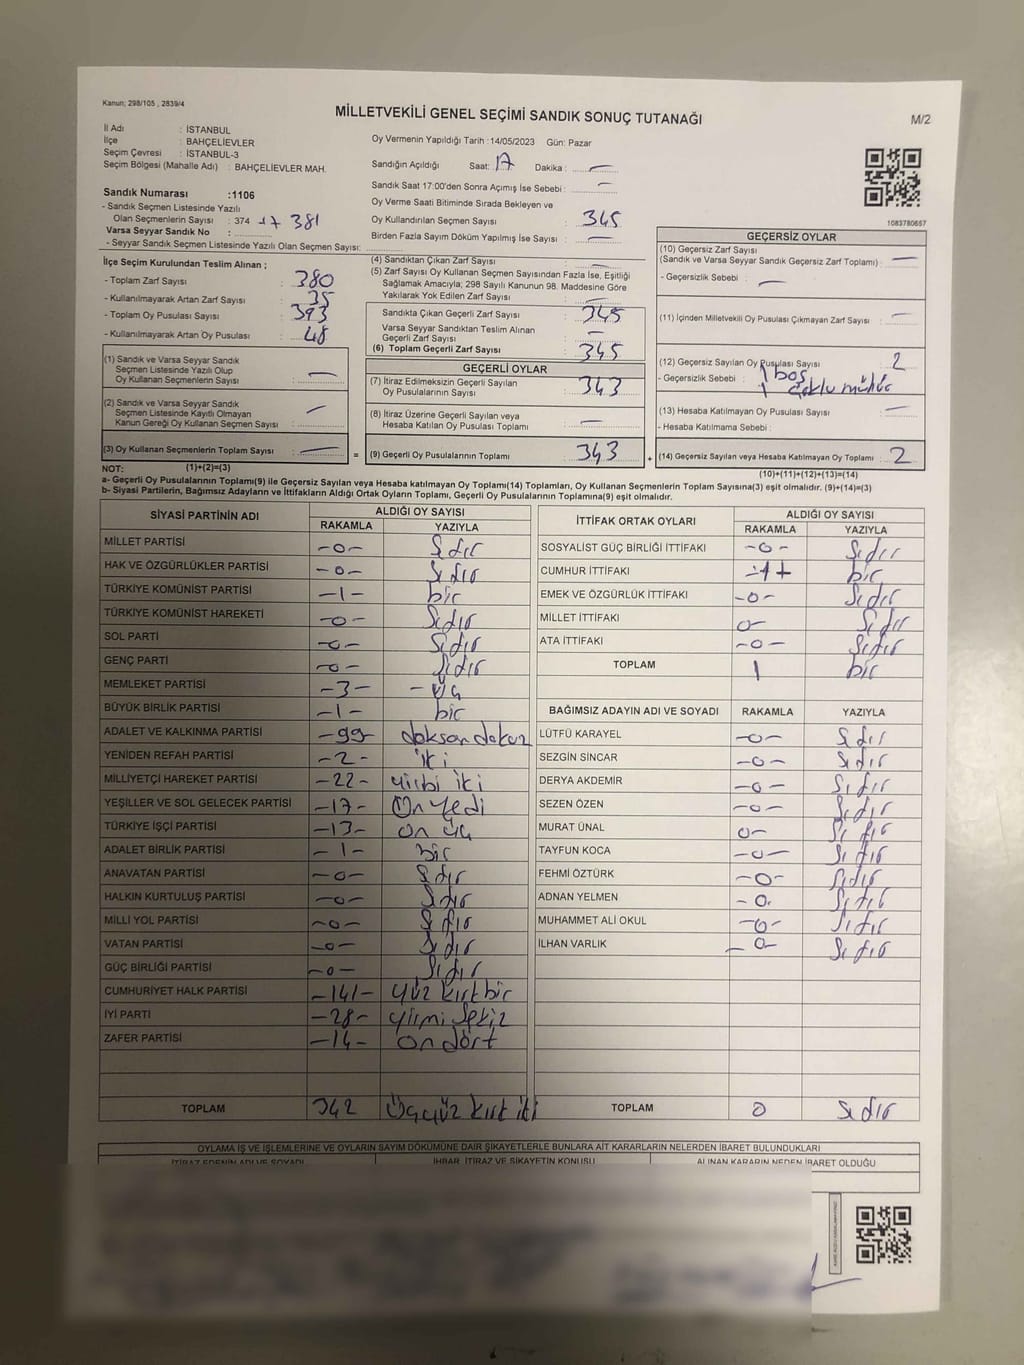 Kanun; 298/105 , 2839/4
MİLLETVEKİLİ GENEL SEÇİMİ SANDIK SONUÇ TUTANAĞI
M/2
İl Adı : İSTANBUL
İlçe : BAHÇELİEVLER
Seçim Çevresi : İSTANBUL-3
Seçim Bölgesi (Mahalle Adı) : BAHÇELİEVLER MAH.
Oy Vermenin Yapıldığı Tarih :14/05/2023 Gün: Pazar
Sandığın Açıldığı Saat: 17 Dakika : —
Sandık Saat 17:00'den Sonra Açımış İse Sebebi : —
Oy Verme Saati Bitiminde Sırada Bekleyen ve
Oy Kullandırılan Seçmen Sayısı : 345
Birden Fazla Sayım Döküm Yapılmış İSe Sayısı : —
Sandık Numarası :1106
- Sandık Seçmen Listesinde Yazılı
Olan Seçmenlerin Sayısı : 374 +7 381
Varsa Seyyar Sandık No :
- Seyyar Sandık Seçmen Listesinde Yazılı Olan Seçmen Sayısı:
1083780657
İlçe Seçim Kurulundan Teslim Alınan ;
- Toplam Zarf Sayısı : 380
- Kullanılmayarak Artan Zarf Sayısı : 35
- Toplam Oy Pusulası Sayısı : 393
- Kullanılmayarak Artan Oy Pusulası : 48
(1) Sandık ve Varsa Seyyar Sandık
Seçmen Listesinde Yazılı Olup
Oy Kullanan Seçmenlerin Sayısı : —
(2) Sandık ve Varsa Seyyar Sandık
Seçmen Listesinde Kayıtlı Olmayan
Kanun Gereği Oy Kullanan Seçmen Sayısı : —
(3) Oy Kullanan Seçmenlerin Toplam Sayısı : —
(4) Sandıktan Çıkan Zarf Sayısı : —
(5) Zarf Sayısı Oy Kullanan Seçmen Sayısından Fazla İse, Eşitliği
Sağlamak Amacıyla; 298 Sayılı Kanunun 98. Maddesine Göre
Yakılarak Yok Edilen Zarf Sayısı : —
Sandıkta Çıkan Geçerli Zarf Sayısı : 345
Varsa Seyyar Sandıktan Teslim Alınan
Geçerli Zarf Sayısı : —
(6) Toplam Geçerli Zarf Sayısı : 345
GEÇERLİ OYLAR
(7) İtiraz Edilmeksizin Geçerli Sayılan
Oy Pusulalarının Sayısı : 343
(8) İtiraz Üzerine Geçerli Sayılan veya
Hesaba Katılan Oy Pusulası Toplamı : —
= (9) Geçerli Oy Pusulalarının Toplamı : 343
GEÇERSİZ OYLAR
(10) Geçersiz Zarf Sayısı
(Sandık ve Varsa Seyyar Sandık Geçersiz Zarf Toplamı) : —
- Geçersizlik Sebebi : —
(11) İçinden Milletvekili Oy Pusulası Çıkmayan Zarf Sayısı : —
(12) Geçersiz Sayılan Oy Pusulası Sayısı : 2
- Geçersizlik Sebebi : 1 boş
1 çoklu mühür
(13) Hesaba Katılmayan Oy Pusulası Sayısı : —
- Hesaba Katılmama Sebebi :
+ (14) Geçersiz Sayılan veya Hesaba Katılmayan Oy Toplamı : 2
NOT: (1)+(2)=(3) (10)+(11)+(12)+(13)=(14)
a- Geçerli Oy Pusulalarının Toplamı(9) ile Geçersiz Sayılan veya Hesaba katılmayan Oy Toplamı(14) Toplamları, Oy Kullanan Seçmenlerin Toplam Sayısına(3) eşit olmalıdır. (9)+(14)=(3)
b- Siyasi Partilerin, Bağımsız Adayların ve İttifakların Aldığı Ortak Oyların Toplamı, Geçerli Oy Pusulalarının Toplamına(9) eşit olmalıdır.
SİYASİ PARTİNİN ADI ALDIĞI OY SAYISI
RAKAMLA YAZIYLA
MİLLET PARTİSİ -0- Sıfır
HAK VE ÖZGÜRLÜKLER PARTİSİ -0- Sıfır
TÜRKİYE KOMÜNİST PARTİSİ -1- bir
TÜRKİYE KOMÜNİST HAREKETİ -0- Sıfır
SOL PARTİ -0- Sıfır
GENÇ PARTİ -0- Sıfır
MEMLEKET PARTİSİ -3- - Üç
BÜYÜK BİRLİK PARTİSİ -1- bir
ADALET VE KALKINMA PARTİSİ -99- doksan dokuz
YENİDEN REFAH PARTİSİ -2- iki
MİLLİYETÇİ HAREKET PARTİSİ -22- yirmi iki
YEŞİLLER VE SOL GELECEK PARTİSİ -17- On yedi
TÜRKİYE İŞÇİ PARTİSİ -13- on üç
ADALET BİRLİK PARTİSİ -1- bir
ANAVATAN PARTİSİ -0- Sıfır
HALKIN KURTULUŞ PARTİSİ -0- Sıfır
MİLLİ YOL PARTİSİ -0- Sıfır
VATAN PARTİSİ -0- Sıfır
GÜÇ BİRLİĞİ PARTİSİ -0- Sıfır
CUMHURİYET HALK PARTİSİ -141- Yüz kırk bir
İYİ PARTİ -28- yirmi sekiz
ZAFER PARTİSİ -14- on dört
TOPLAM 342 Üçyüz kırk iki
İTTİFAK ORTAK OYLARI ALDIĞI OY SAYISI
RAKAMLA YAZIYLA
SOSYALİST GÜÇ BİRLİĞİ İTTİFAKI -0- Sıfır
CUMHUR İTTİFAKI -1- bir
EMEK VE ÖZGÜRLÜK İTTİFAKI -0- Sıfır
MİLLET İTTİFAKI 0- Sıfır
ATA İTTİFAKI -0- Sıfır
TOPLAM 1 bir
BAĞIMSIZ ADAYIN ADI VE SOYADI RAKAMLA YAZIYLA
LÜTFÜ KARAYEL -0- Sıfır
SEZGİN SİNCAR -0- Sıfır
DERYA AKDEMİR -0- Sıfır
SEZEN ÖZEN -0- Sıfır
MURAT ÜNAL 0- Sıfır
TAYFUN KOCA -0- Sıfır
FEHMİ ÖZTÜRK -0- Sıfır
ADNAN YELMEN -0. Sıfır
MUHAMMET ALİ OKUL -0- Sıfır
İLHAN VARLIK -0- Sıfır
TOPLAM 0 Sıfır
OYLAMA İŞ VE İŞLEMLERİNE VE OYLARIN SAYIM DÖKÜMÜNE DAİR ŞİKAYETLERLE BUNLARA AİT KARARLARIN NELERDEN İBARET BULUNDUKLARI
İTİRAZ EDENİN ADI VE SOYADI İHBAR, İTİRAZ VE ŞİKAYETİN KONUSU ALINAN KARARIN NEDEN İBARET OLDUĞU